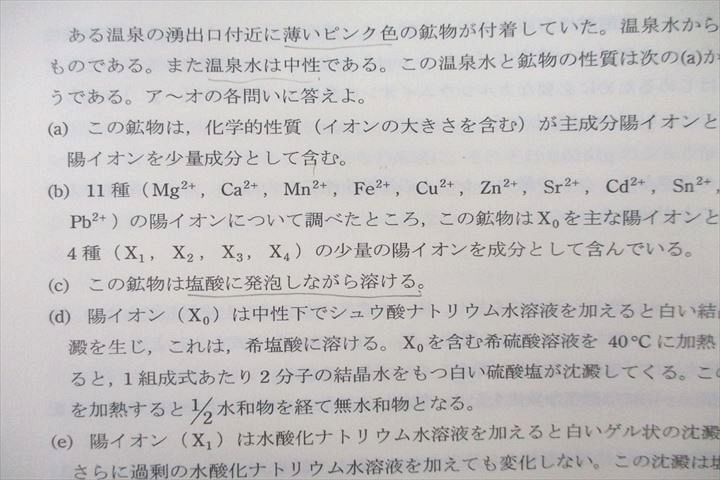 ある温泉の湧出口付近に薄いピンク色の鉱物が付着していた。温泉水から
ものである。また温泉水は中性である。この温泉水と鉱物の性質は次の(a)か
うである。ア〜オの各問いに答えよ。
(a) この鉱物は，化学的性質（イオンの大きさを含む）が主成分陽イオンと
陽イオンを少量成分として含む。
(b) 11種（Mg²⁺，Ca²⁺，Mn²⁺，Fe²⁺，Cu²⁺，Zn²⁺，Sr²⁺，Cd²⁺，Sn²⁺，
Pb²⁺）の陽イオンについて調べたところ，この鉱物はX₀を主な陽イオンと
4種（X₁，X₂，X₃，X₄）の少量の陽イオンを成分として含んでいる。
(c) この鉱物は塩酸に発泡しながら溶ける。
(d) 陽イオン（X₀）は中性下でシュウ酸ナトリウム水溶液を加えると白い結
澱を生じ，これは，希塩酸に溶ける。X₀を含む希硫酸溶液を 40℃に加熱
ると，1組成式あたり2分子の結晶水をもつ白い硫酸塩が沈澱してくる。この
を加熱すると1/2水和物を経て無水和物となる。
(e) 陽イオン（X₁）は水酸化ナトリウム水溶液を加えると白いゲル状の沈澱
さらに過剰の水酸化ナトリウム水溶液を加えても変化しない。この沈澱は塩